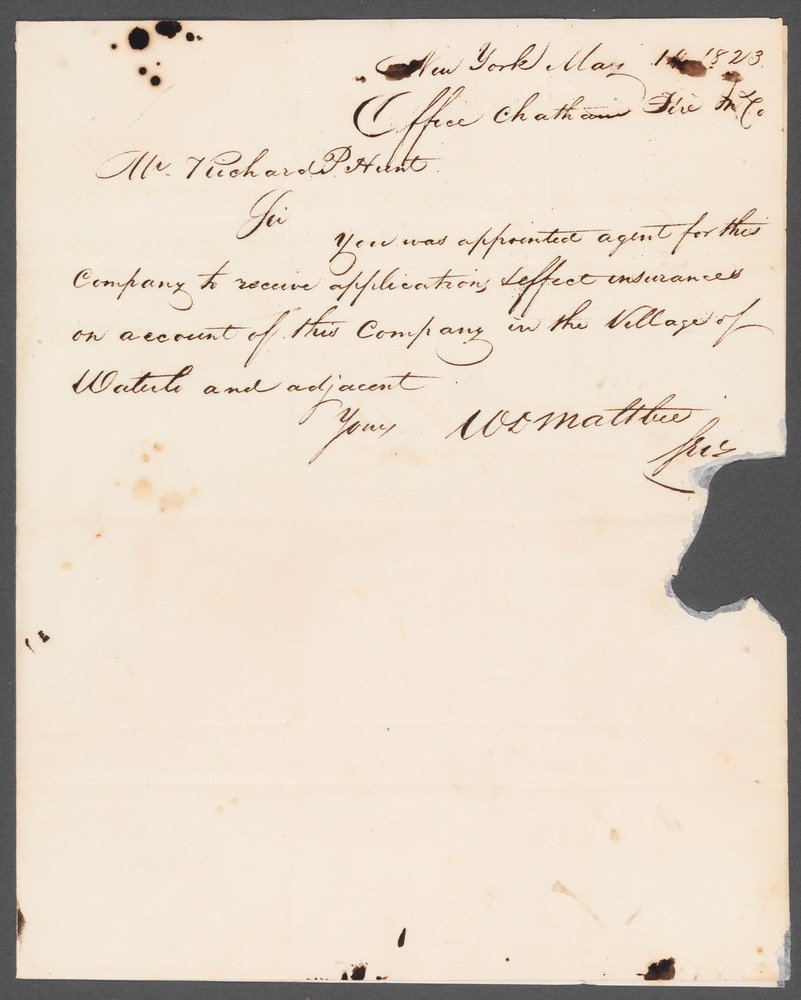 New York May 14 1823
Office Chatham Fire In Co
Mr. Richard P. Hunt
Sir
You was appointed agent for this
Company to receive applications & effect insurances
on account of this Company in the Village of
Waterlo and adjacent
Yours W D Maltbie
Secy